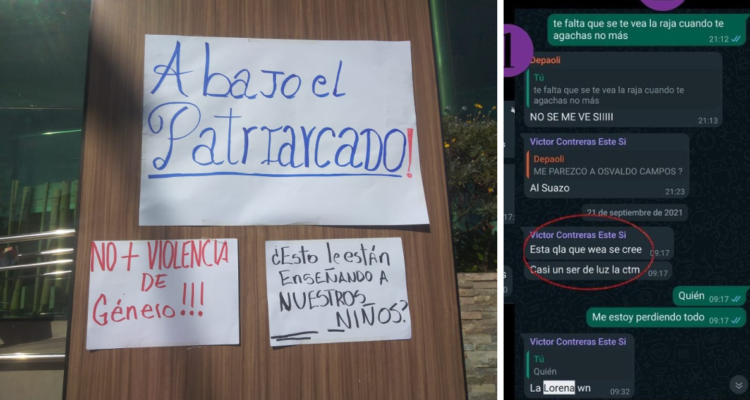 Abajo el
Patriarcado!
NO + VIOLENCIA
DE
Género!!!
¿Esto le están
ENSEÑANDO A
NUESTROS
NIÑOS?
te falta que se te vea la raja cuando te
agachas no más
21:12
1
Depaoli
Tú
te falta que se te vea la raja cuando te
agachas no más
NO SE ME VE SIIIII
21:13
Victor Contreras Este Si
Depaoli
ME PAREZCO A OSVALDO CAMPOS ?
Al Suazo
21:23
21 de septiembre de 2021
Victor Contreras Este Si
Esta qla que wea se cree
09:17
Casi un ser de luz la ctm
09:17
Quién 09:17
Me estoy perdiendo todo 09:17
Victor Contreras Este Si
Tú
Quién
La Lorena wn
09:32